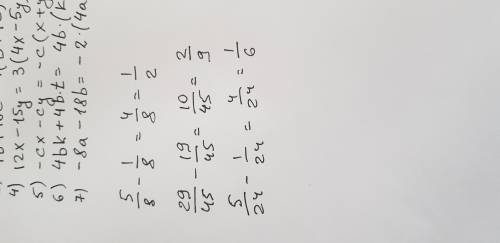 4) 12x-15y=3(4x-5y
5) -cx-cy=-c(x+y
6) 4bk+4b·t=4b·(k
7) -8a-18b=-2·(4a
5/8 - 1/8 = 4/8 = 1/2
29/45 - 19/45 = 10/45 = 2/9
5/24 - 1/24 = 4/24 = 1/6